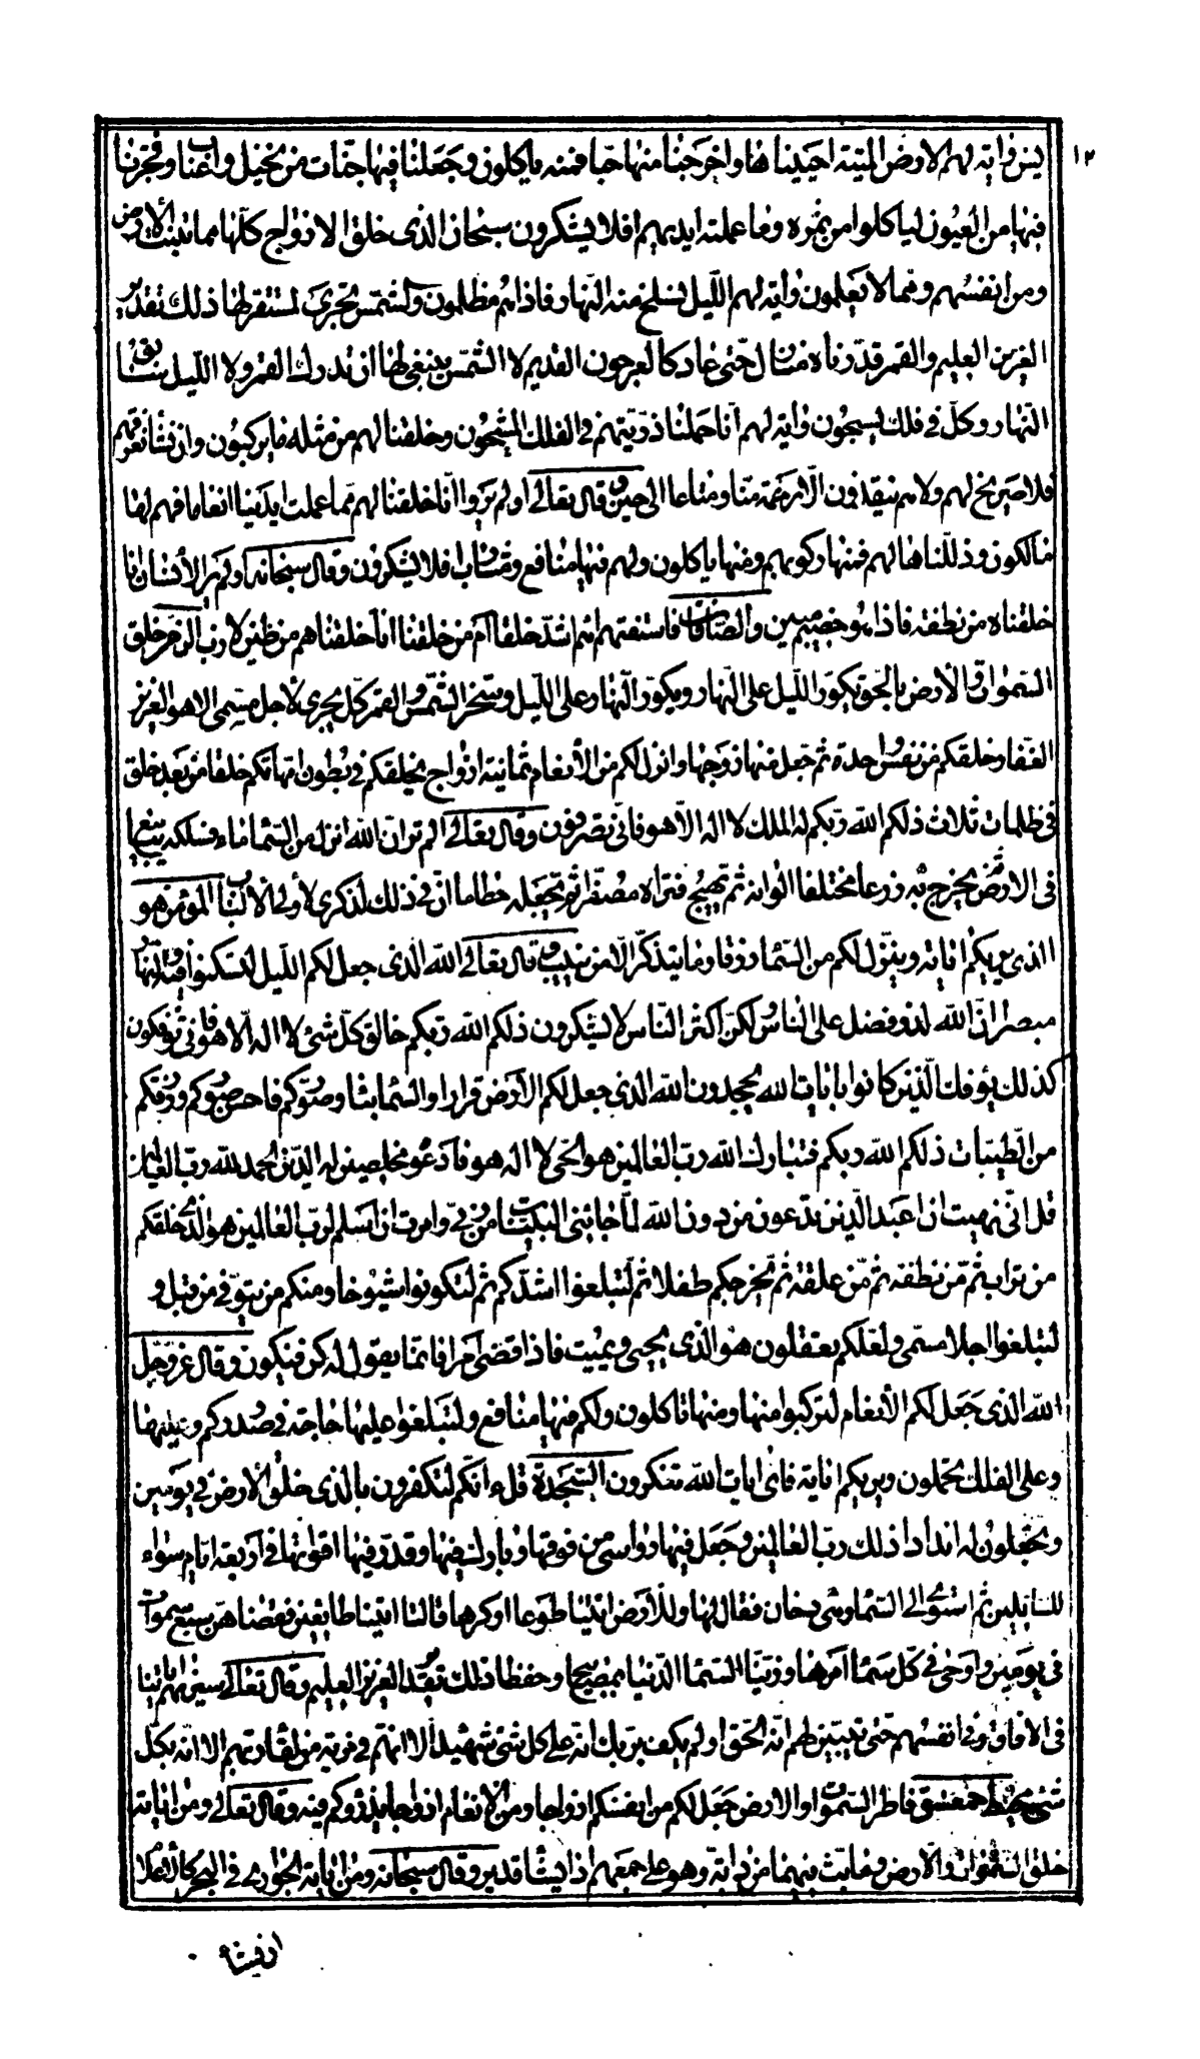 ١٢
يس واية لهم الارض الميتة احييناها واخرجنا منها حبا فمنه ياكلون وجعلنا فيها جنات من نخيل واعناب وفجرنا
فيها من العيون لياكلوا من ثمره وما عملته ايديهم افلا يشكرون سبحان الذى خلق الازواج كلها مما تنبت الارض
ومن انفسهم ومما لا يعلمون واية لهم الليل نسلخ منه النهار فاذا هم مظلمون والشمس تجرى لمستقر لها ذلك تقدير
العزيز العليم والقمر قدرناه منازل حتى عاد كالعرجون القديم لا الشمس ينبغى لها ان تدرك القمر ولا الليل سابق
النهار وكل فى فلك يسبحون واية لهم انا حملنا ذريتهم فى الفلك المشحون وخلقنا لهم من مثله ما يركبون وان نشا نغرقهم
فلا صريخ لهم ولا هم ينقذون الا رحمة منا ومتاعا الى حين وقال تعالى اولم يروا انا خلقنا لهم مما عملت ايدينا انعاما فهم لها
مالكون وذللناها لهم فمنها ركوبهم ومنها ياكلون ولهم فيها منافع ومشارب افلا يشكرون وقال سبحانه اولم ير الانسان انا
خلقناه من نطفة فاذا هو خصيم مبين والصافات فاستفتهم اهم اشد خلقا ام من خلقنا انا خلقناهم من طين لازب الزمر خلق
السموات والارض بالحق يكور الليل على النهار ويكور النهار على الليل وسخر الشمس والقمر كل يجرى لاجل مسمى الا هو العزيز
الغفار خلقكم من نفس واحدة ثم جعل منها زوجها وانزل لكم من الانعام ثمانية ازواج يخلقكم فى بطون امهاتكم خلقا من بعد خلق
فى ظلمات ثلاث ذلكم الله ربكم له الملك لا اله الا هو فانى تصرفون وقال تعالى الم تر ان الله انزل من السماء ماء فسلكه ينابيع
فى الارض ثم يخرج به زرعا مختلفا الوانه ثم يهيج فتراه مصفرا ثم يجعله حطاما ان فى ذلك لذكرى لاولى الالباب المؤمن هو
الذى يريكم اياته وينزل لكم من السماء رزقا وما يتذكر الا من ينيب وقال تعالى الله الذى جعل لكم الليل لتسكنوا فيه والنهار
مبصرا ان الله لذو فضل على الناس لكن اكثر الناس لا يشكرون ذلكم الله ربكم خالق كل شئ لا اله الا هو فانى تؤفكون
كذلك يؤفك الذين كانوا بايات الله يجحدون الله الذى جعل لكم الارض قرارا والسماء بناء وصوركم فاحسن صوركم ورزقكم
من الطيبات ذلكم الله ربكم فتبارك الله رب العالمين هو الحى لا اله هو فادعوه مخلصين له الدين الحمد لله رب العالمين
قل انى نهيت ان اعبد الذين تدعون من دون الله لما جائنى البينات من ربى وامرت ان اسلم لرب العالمين هو الذى خلقكم
من تراب ثم من نطفة ثم من علقة ثم يخرجكم طفلا ثم لتبلغوا اشدكم ثم لتكونوا شيوخا ومنكم من يتوفى من قبل و
لتبلغوا اجلا مسمى ولعلكم تعقلون هو الذى يحيى ويميت فاذا قضى امرا فانما يقول له كن فيكون وقال عز وجل
الله الذى جعل لكم الانعام لتركبوا منها ومنها تاكلون ولكم فيها منافع ولتبلغوا عليها حاجة فى صدوركم وعليها
وعلى الفلك تحملون ويريكم اياته فاى ايات الله تنكرون السجدة قل ءانكم لتكفرون بالذى خلق الارض فى يومين
وتجعلون له اندادا ذلك رب العالمين وجعل فيها رواسى من فوقها وبارك فيها وقدر فيها اقواتها فى اربعة ايام سواء
للسايلين ثم استوى الى السماء وهى دخان فقال لها وللارض ائتيا طوعا او كرها قالتا اتينا طايعين فقضاهن سبع سموات
فى يومين واوحى فى كل سماء امرها وزينا السماء الدنيا بمصابيح وحفظا ذلك تقدير العزيز العليم وقال تعالى سنريهم اياتنا
فى الافاق وفى انفسهم حتى يتبين لهم انه الحق اولم يكف بربك انه على كل شئ شهيد الا انهم فى مرية من لقاء ربهم الا انه بكل
شئ محيط حمعسق فاطر السموات والارض جعل لكم من انفسكم ازواجا ومن الانعام ازواجا يذرؤكم فيه وقال تعالى ومن اياته
خلق السموات والارض وما بث فيهما من دابة وهو على جمعهم اذا يشاء قدير وقال سبحانه ومن اياته الجوار فى البحر كالاعلام
ان يشاء